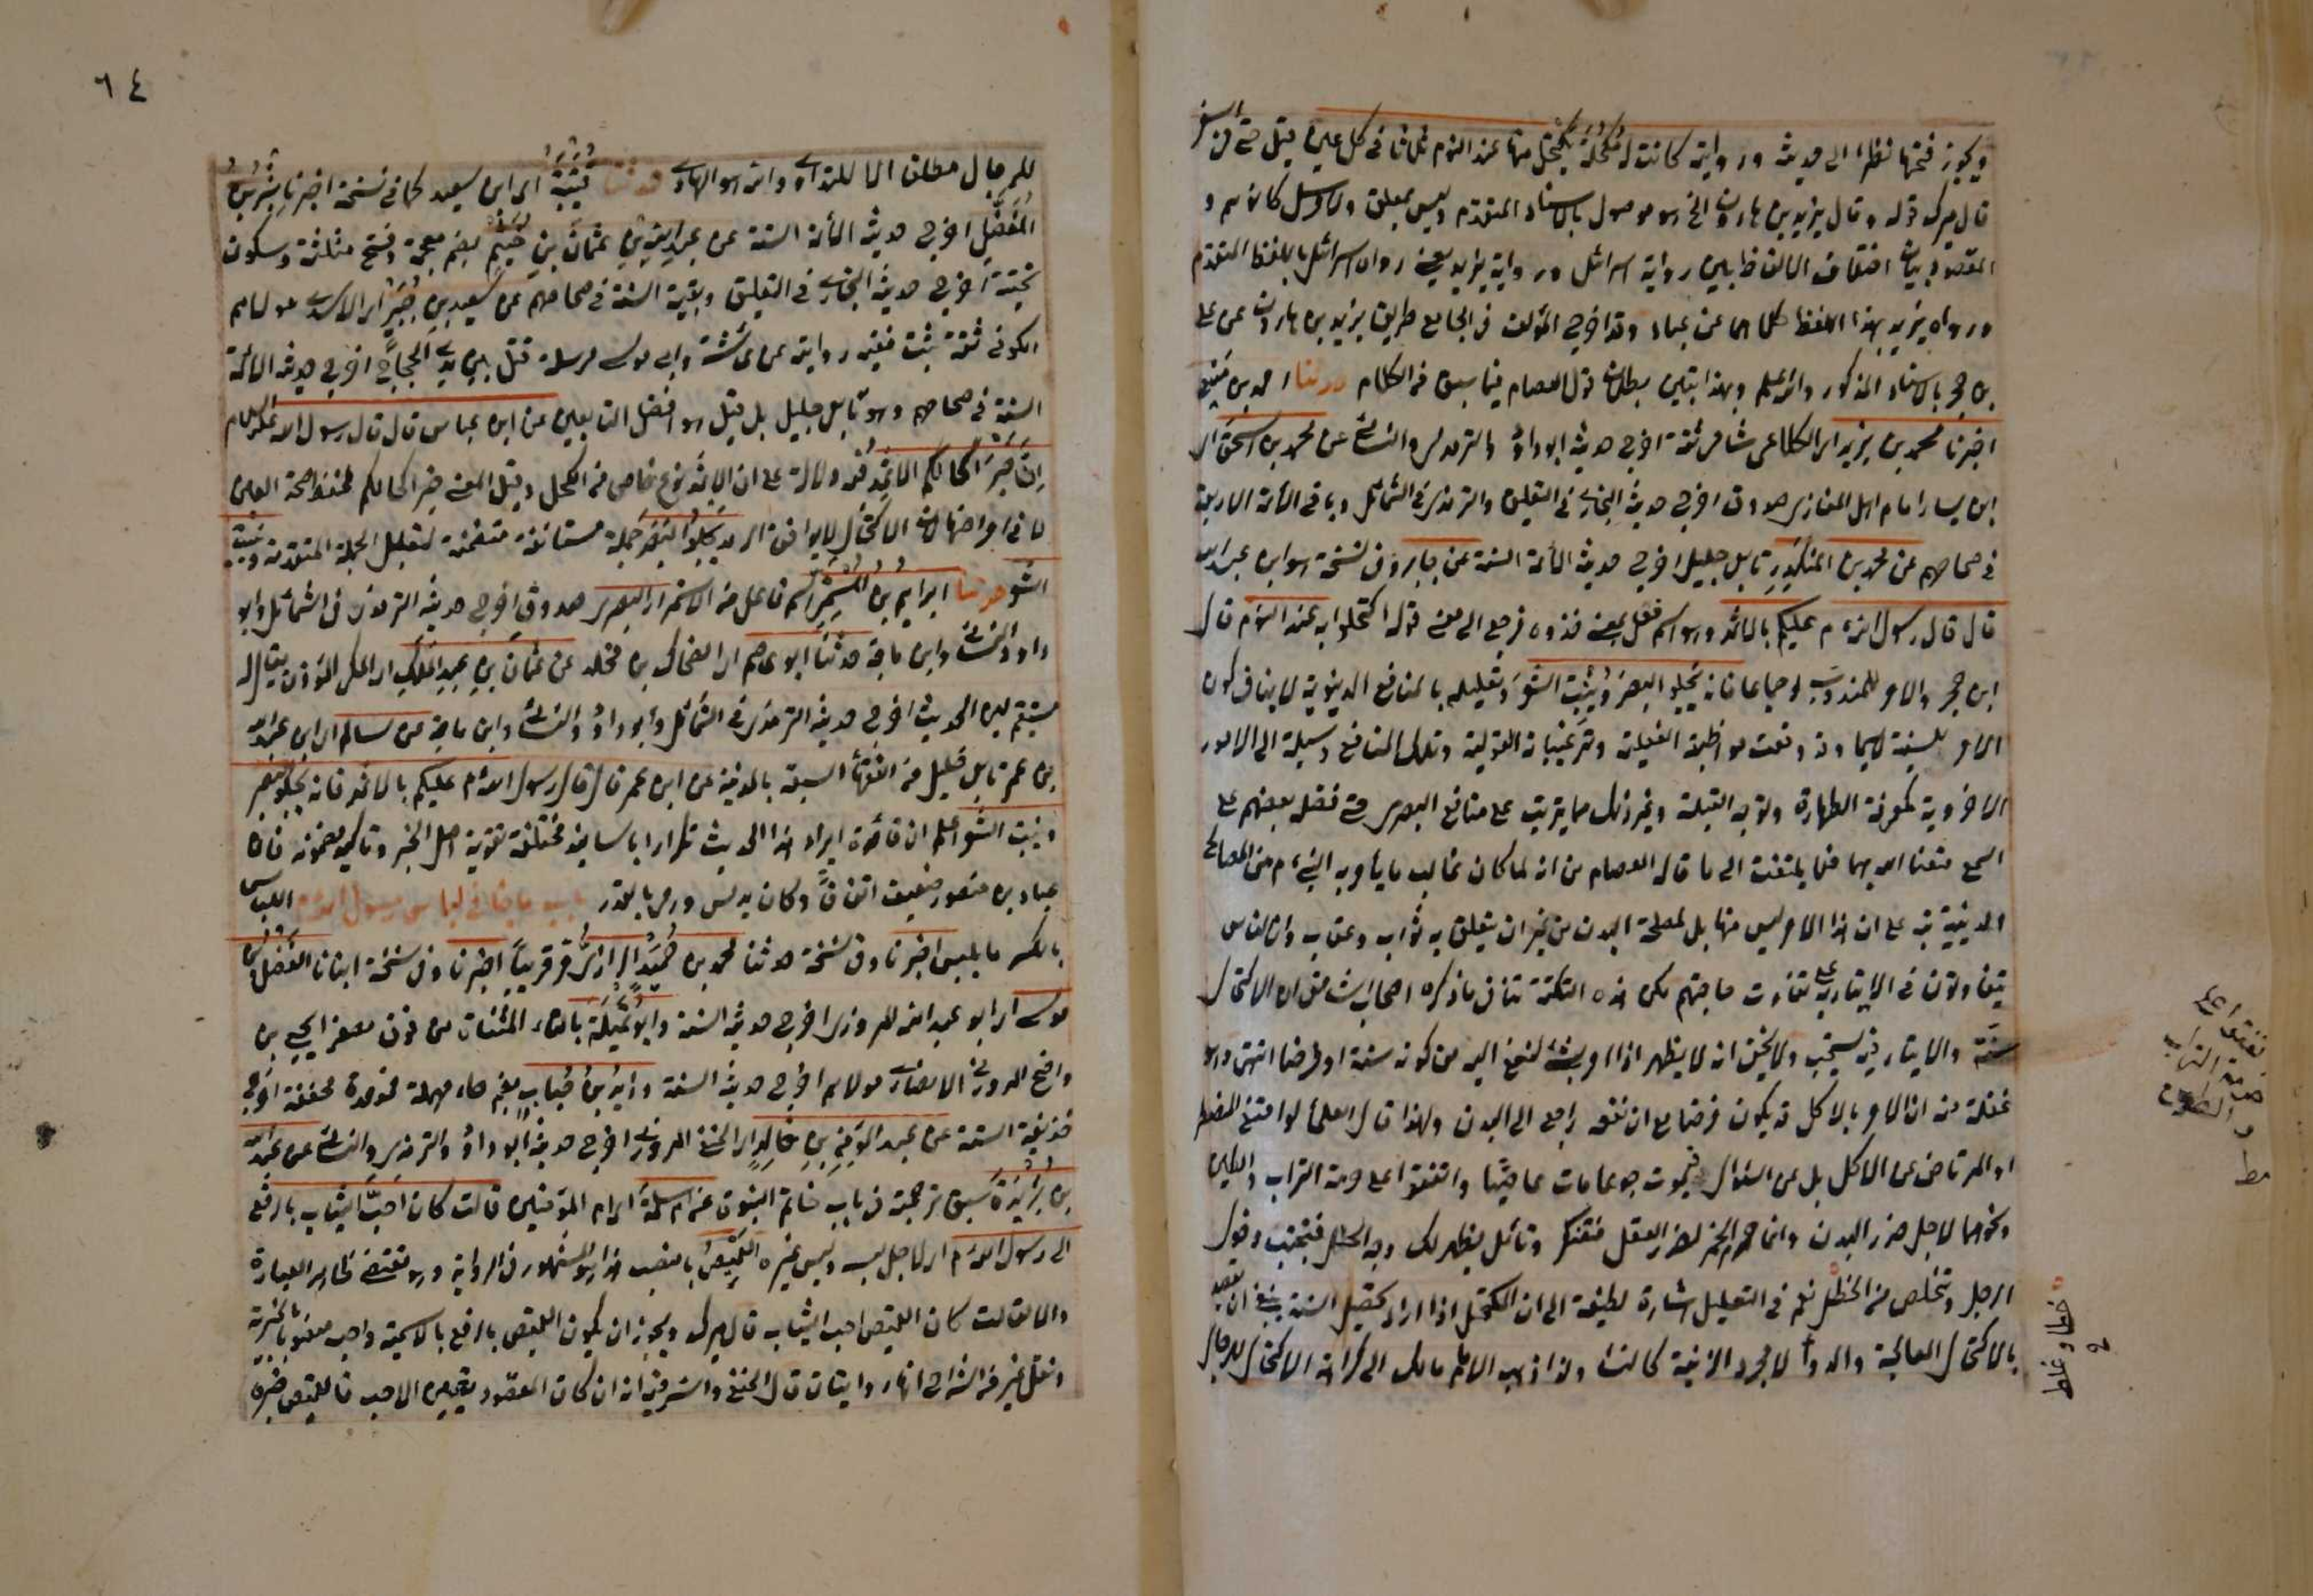 ويجوز فتحها نظرا الى حديثه ورواية كانت له مكحلة يكتحل منها عند النوم ثلاثا في كل عين قيل حتى في السفر
قال ميرك قوله وقال يزيد بن هارون الخ هو موصول بالاسناد المتقدم وليس بمعلق ولا مرسل كما توهم و
المقصود بيان اختلاف الالفاظ بين رواية اسرائيل ورواية يزيد يعني رواه اسرائيل باللفظ المتقدم
ورواه يزيد بهذا اللفظ كلاهما عن عباد وقد اخرج المؤلف في الجامع طريق يزيد بن هارون عن علي
بن حجر بالاسناد المذكور والله اعلم وبهذا يتبين بطلان قول العصام فيما سبق من الكلام حدثنا احمد بن منيع
اخبرنا محمد بن يزيد اي الكلاعي شامي ثقة اخرج حديثه ابو داود والترمذي والنسائي عن محمد بن اسحق اي
ابن يسار امام اهل المغازي صدوق اخرج حديثه البخاري في التعليق والترمذي في الشمائل وباقي الائمة الاربعة
في صحاحهم عن محمد بن المنكدر تابعي جليل اخرج حديثه الائمة الستة عن جابر وفي نسخة هو ابن عبد الله
قال قال رسول الله م عليكم بالاثمد وهو اسم فعل بمعنى خذوه فرجع الى معنى قوله اكتحلوا به عند النوم قال
ابن حجر والامر للمندوب اجماعا فانه يجلو البصر وينبت الشعر وتعليله بالمنافع الدنيوية لا ينافي كون
الامر للسنية لاسيما وقد وقعت مواظبته الفعلية وترغيباته القولية وتلك المنافع وسيلة الى الامور
الاخروية كمعرفة الطهارة وتوجه القبلة وغير ذلك مما يترتب على منافع البصر حتى فضله بعضهم على
السمع متعنا الله بهما فلا يلتفت الى ما قاله العصام من انه لما كان غالب ما يأمر به النبي م من المصالح
الدينية نبه على ان هذا الامر ليس منها بل لمصلحة البدن من غير ان يتعلق به ثواب وعقاب وان الناس
يتفاوتون في الايتار به على تفاوت حاجتهم لكن هذه النكتة تنافي ما ذكره اصحاب الشافعي ان الاكتحال
سنة والايتار فيه يستحب ولا يخفى انه لا يظهر اذا امر بشئ لنفع البدن من كونه سنة او فرضا انتهى وهو
غفلة منه اذ الامر بالاكل قد يكون فرضا مع ان نفعه راجع الى البدن ولهذا قال العلماء لو امتنع المضطر
او المرتاض عن الاكل بل عن السؤال فيموت جوعا مات عاصيا واتفقوا على حرمة التراب والطين
ونحوهما لاجل ضرر البدن وانما حرم الخمر لضرر العقل فتفكر وتأمل يظهر لك وجه الخلل فتجنب دخول
الوحل وتخلص من الخطل نعم في التعليل اشارة لطيفة الى ان المكتحل اذا اراد تحصيل السنة ينبغي ان يقصد
بالاكتحال المعالجة والدواء لا مجرد الزينة كالنساء ولذا ذهب الامام مالك الى كراهة الاكتحال للرجال
اتفقوا على
حرمة التراب
والطين
مط
خطل خطا وغلط
٦٤
للرجال مطلقا الا للتداوي والله هو الهادي حدثنا قتيبة اي ابن سعيد كما في نسخة اخبرنا بشر بن
المفضل اخرج حديثه الائمة الستة عن عبد الله بن عثمان بن خثيم بضم معجمة وفتح مثلثة وسكون
تحتية اخرج حديثه البخاري في التعليق وبقية الستة في صحاحهم عن سعيد بن جبير اي الاسدي مولاهم
الكوفي ثقة ثبت فقيه روايته عن عائشة وابي موسى مرسلة قتل بين يدي الحجاج اخرج حديثه الائمة
الستة في صحاحهم وهو تابعي جليل بل قيل هو افضل التابعين عن ابن عباس قال قال رسول الله عليه السلام
ان خير اكحالكم الاثمد فيه دلالة على ان الاثمد نوع خاص من الكحل وقيل المعنى خير اكحالكم لحفظ صحة العين
لا في امراضها لان الاكتحال لا يوافق الرمد يجلو البصر جملة مستانفة متضمنة لتعليل الجملة المتقدمة وينبت
الشعر حدثنا ابراهيم بن المستمر اسم فاعل من الاستمرار البصري صدوق اخرج حديثه الترمذي في الشمائل وابو
داود والنسائي وابن ماجة حدثنا ابو عاصم اي الضحاك بن مخلد عن عثمان بن عبد الملك اي المكي المؤذن يقال له
مستقيم لين الحديث اخرج حديثه الترمذي في الشمائل وابو داود والنسائي وابن ماجة عن سالم اي ابن عبد الله
بن عمر تابعي جليل من الفقهاء السبعة بالمدينة عن ابن عمر قال قال رسول الله م عليكم بالاثمد فانه يجلو البصر
وينبت الشعر اعلم ان فائدة ايراد هذا الحديث تكرارا باسانيد مختلفة تقوية اصل الخبر وتاكيد مضمونه فان
عباد بن منصور ضعيف اتفاقا وكان يدلس ورمي بالقدر باب ما جاء في لباس رسول الله م اللباس
بالكسر ما يلبس اخبرنا وفي نسخة حدثنا محمد بن حميد الرازي مر قريبا اخبرنا وفي نسخة انبانا الفضل بن
موسى اي ابو عبد الله المروزي اخرج حديثه الستة وابو تميلة بالتاء المثناة من فوق مصغرا يحيى بن
واضح المروزي الانصاري مولاهم اخرج حديثه الستة وزيد بن حباب بضم حاء مهملة فموحدة مخففة اخرج
حديثه الستة عن عبد المؤمن بن خالد اي الحنفي المروزي اخرج حديثه ابو داود والترمذي والنسائي عن عبد الله
بن بريدة سبق ترجمته في باب خاتم النبوة عن ام سلمة اي ام المؤمنين قالت كان احب الثياب بالرفع
الى رسول الله م اي لاجل لبسه وليس غيره القميص بالنصب هذا هو المشهور في الرواية وهو مقتضى ظاهر العبارة
والا لقالت كان القميص احب الثياب قال ميرك ويجوز ان يكون القميص بالرفع بالاسمية واحب منصوبا بالخبرية
ونقل غيره من الشراح انهما روايتان قال الحنفي والسر فيه انه ان كان المقصود تعيين الاحب فالقميص خبره